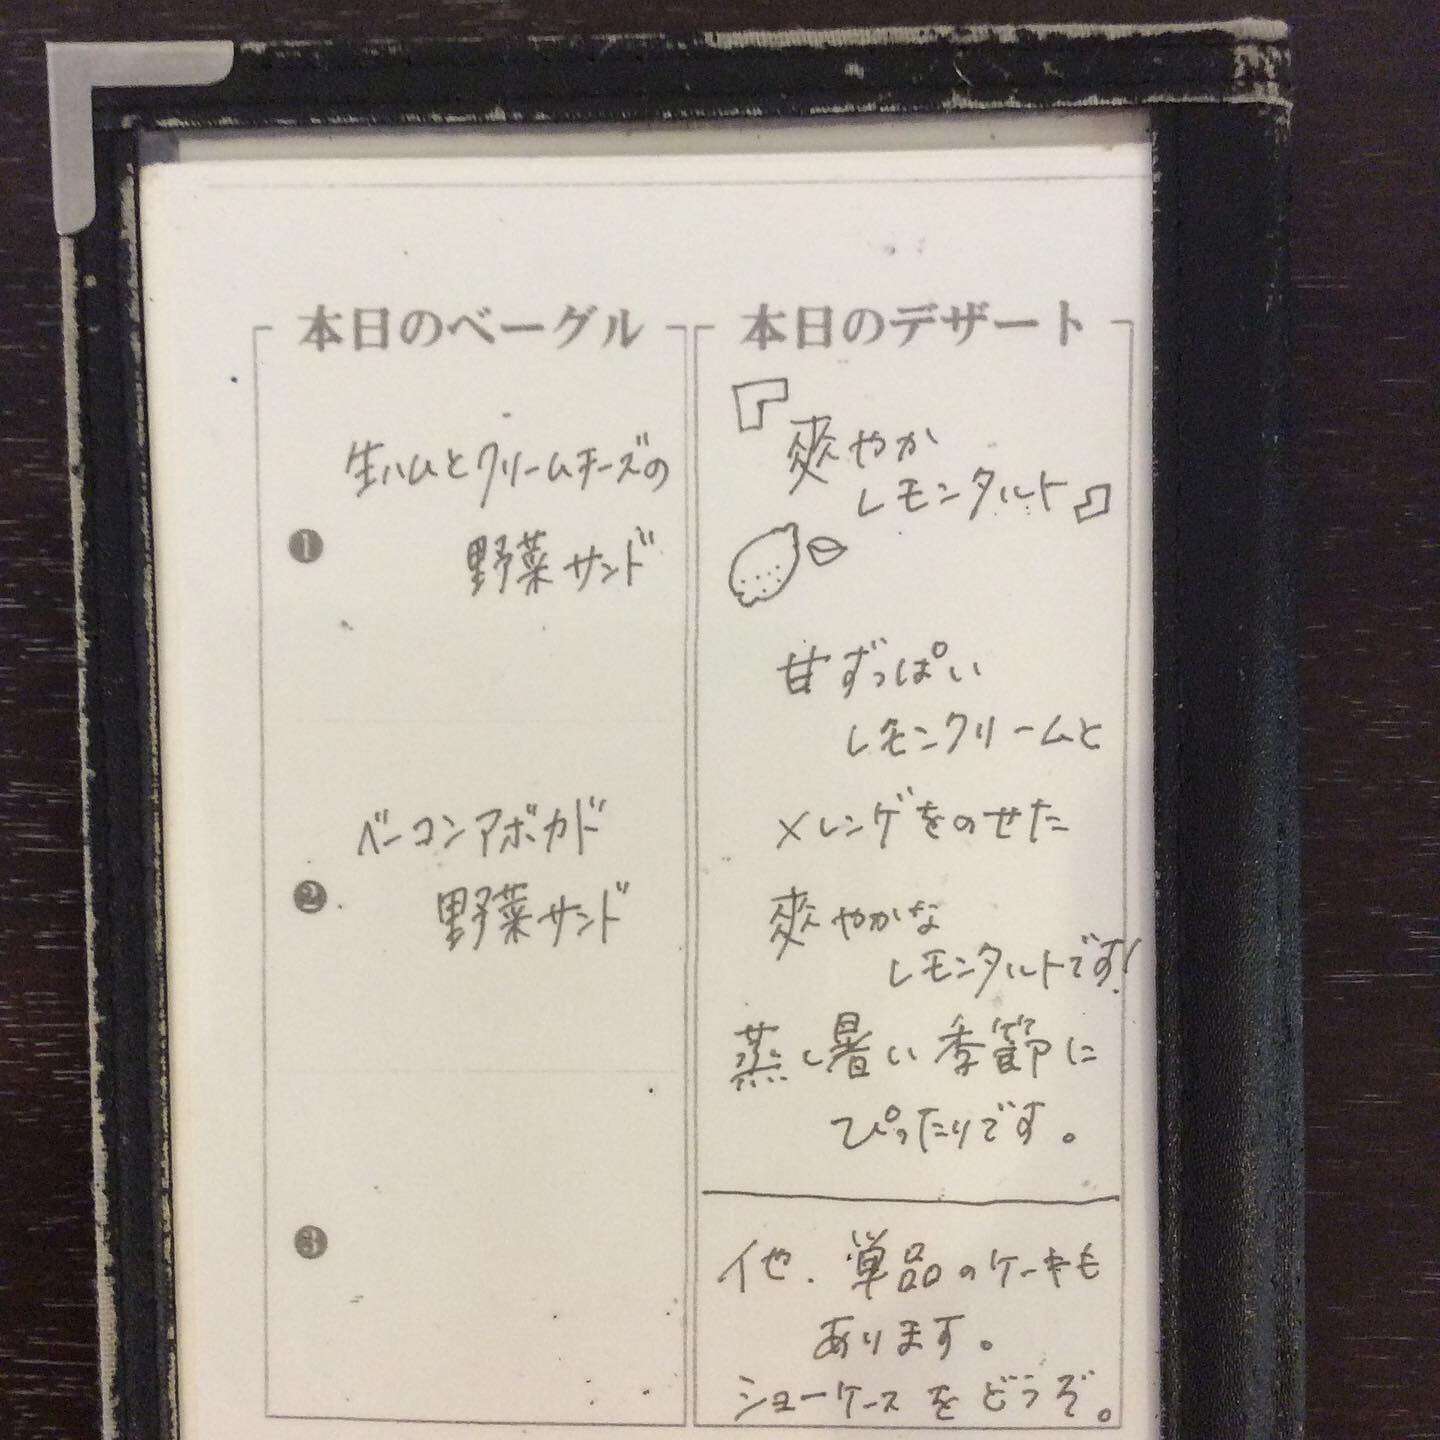 本日のベーグル
❶
生ハムとクリームチーズの
野菜サンド
❷
ベーコンアボカド
野菜サンド
❸
本日のデザート
『爽やか
レモンタルト』
甘ずっぱい
レモンクリームと
メレンゲをのせた
爽やかな
レモンタルトです!
蒸し暑い季節に
ぴったりです。
他、単品のケーキも
あります。
ショーケースをどうぞ。